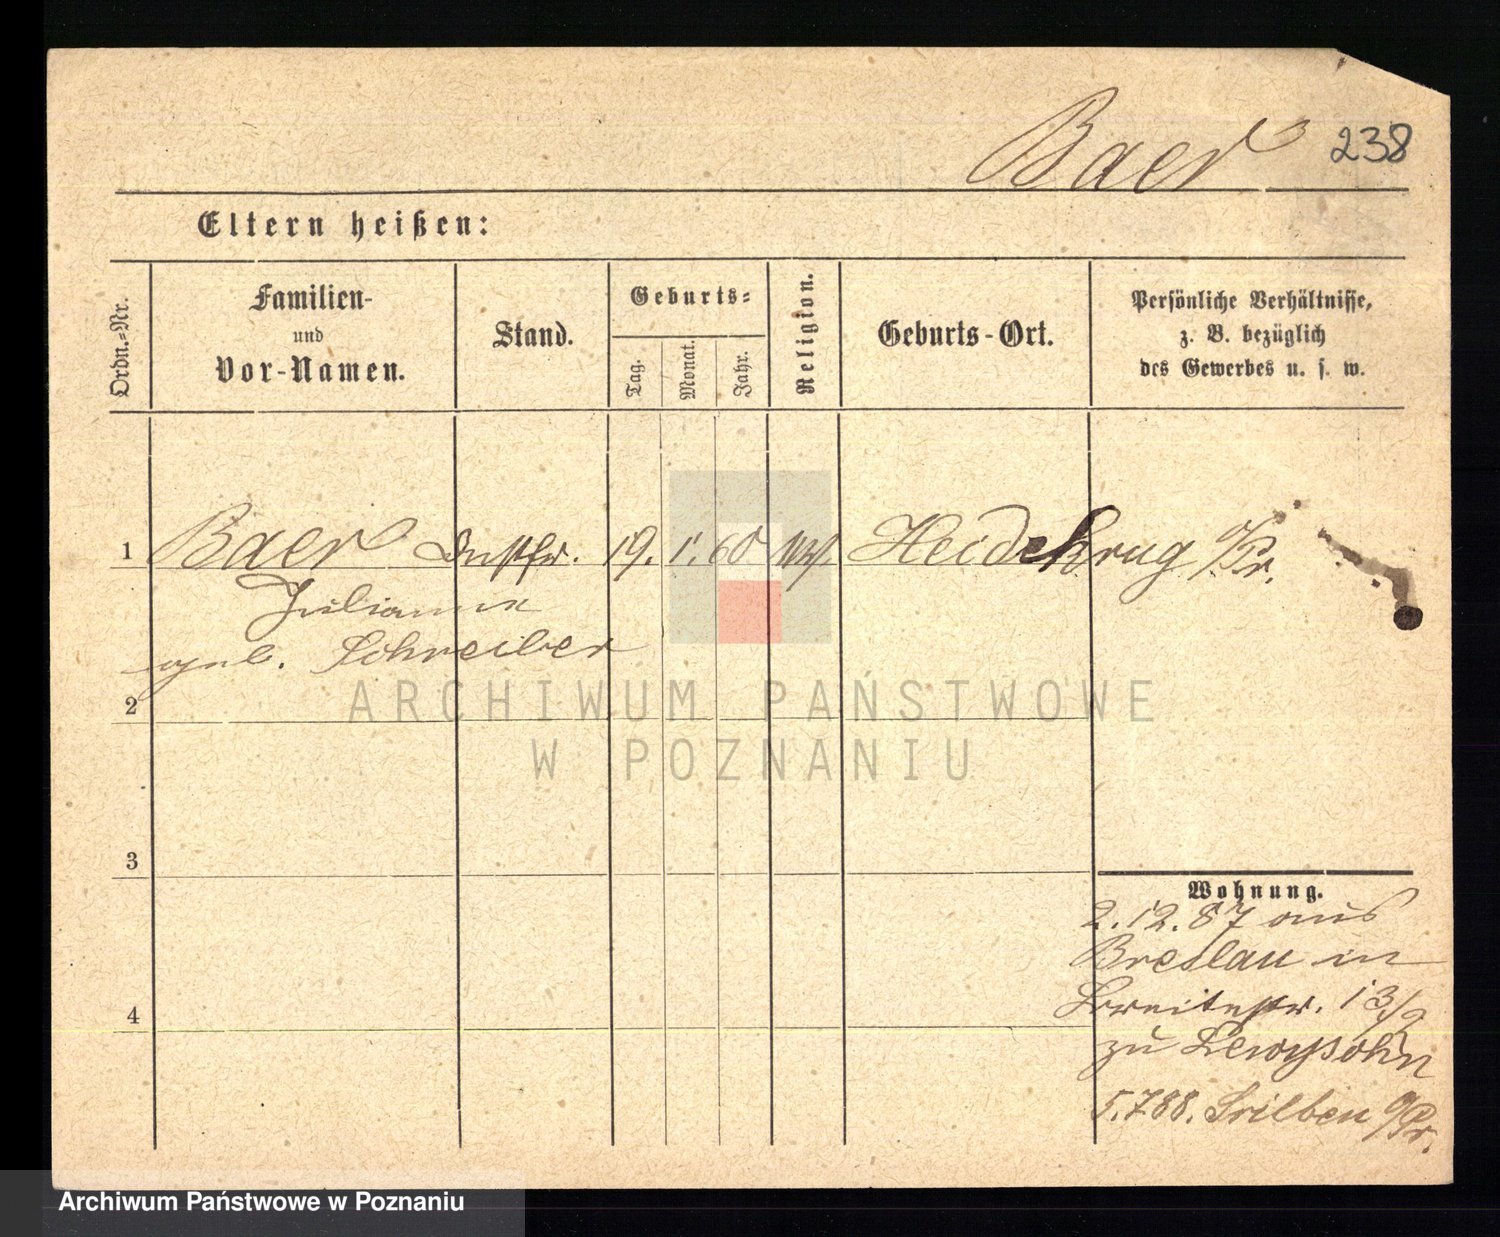 Baer 238
Eltern heißen:
Ordn.-Nr.
Familien-
und
Vor-Namen.
Stand.
Geburts-
Tag.
Monat.
Jahr.
Religion.
Geburts-Ort.
Persönliche Verhältnisse,
z. B. bezüglich
des Gewerbes u. s. w.
1 Baer 19. 1. 60 Heidekrug O/Pr.
Julianne
geb. Schreiber
2
ARCHIWUM PAŃSTWOWE
W POZNANIU
3
Wohnung.
2.12.87 aus
Breslau in
Breitestr. 13/2
zu Lewysohn
4
5.7.88. O/Pr.
Archiwum Państwowe w Poznaniu